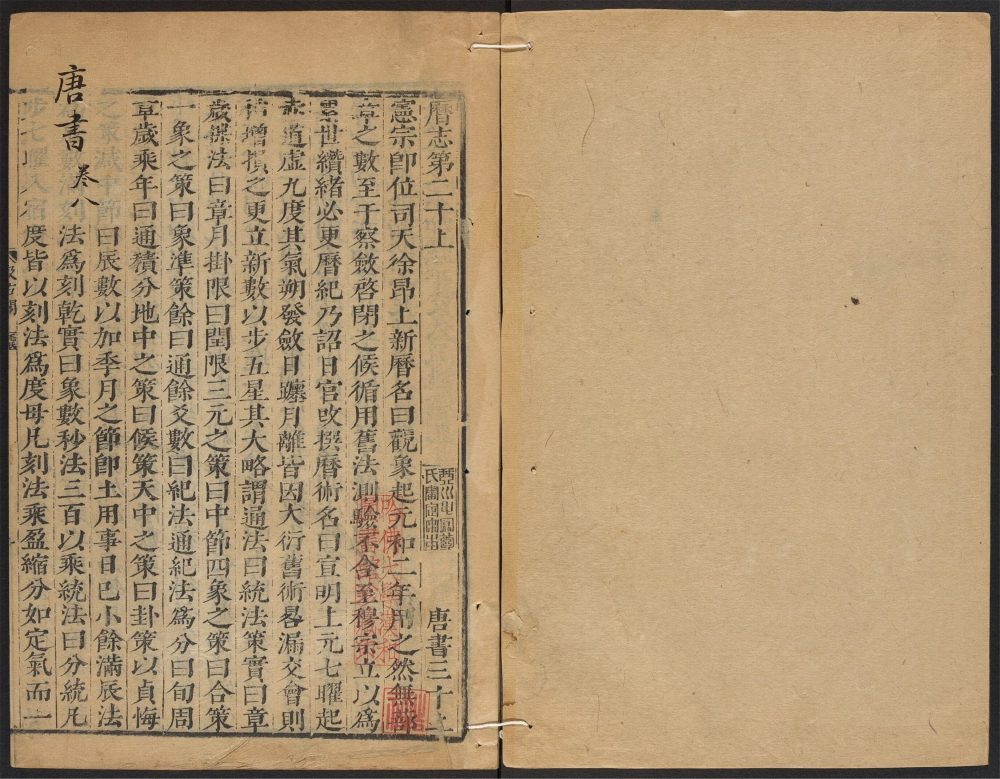 曆志第二十上
唐書三十上
憲宗卽位司天徐昂上新曆名曰觀象起元和二年用之然無蔀
章之數至于察斂啓閉之候循用舊法測驗不合至穆宗立以爲
累世纘緒必更曆紀乃詔日官改撰曆術名曰宣明上元七曜起
赤道虛九度其氣朔發斂日躔月離皆因大衍舊術晷漏交會則
稍增損之更立新數以步五星其大略謂通法曰統法策實曰章
歲揲法曰章月掛限曰閏限三元之策曰中節四象之策曰合策
一象之策曰象準策餘曰通餘爻數曰紀法通紀法爲分曰旬周
章歲乘年曰通積分地中之策曰候策天中之策曰卦策以貞悔
之策減中節曰辰數以加季月之節卽土用事日巳小餘滿辰法
法爲刻乾實曰象數秒法三百以乘統法曰分統凡
步七曜入宿度皆以刻法爲度母凡刻法乘盈縮分如定氣而一
唐書 卷八